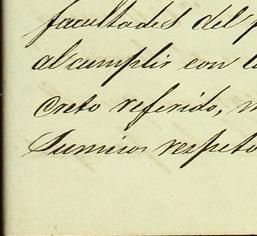 facultades del p
al cumplir con l
creto referido, m
Sumiso respeto